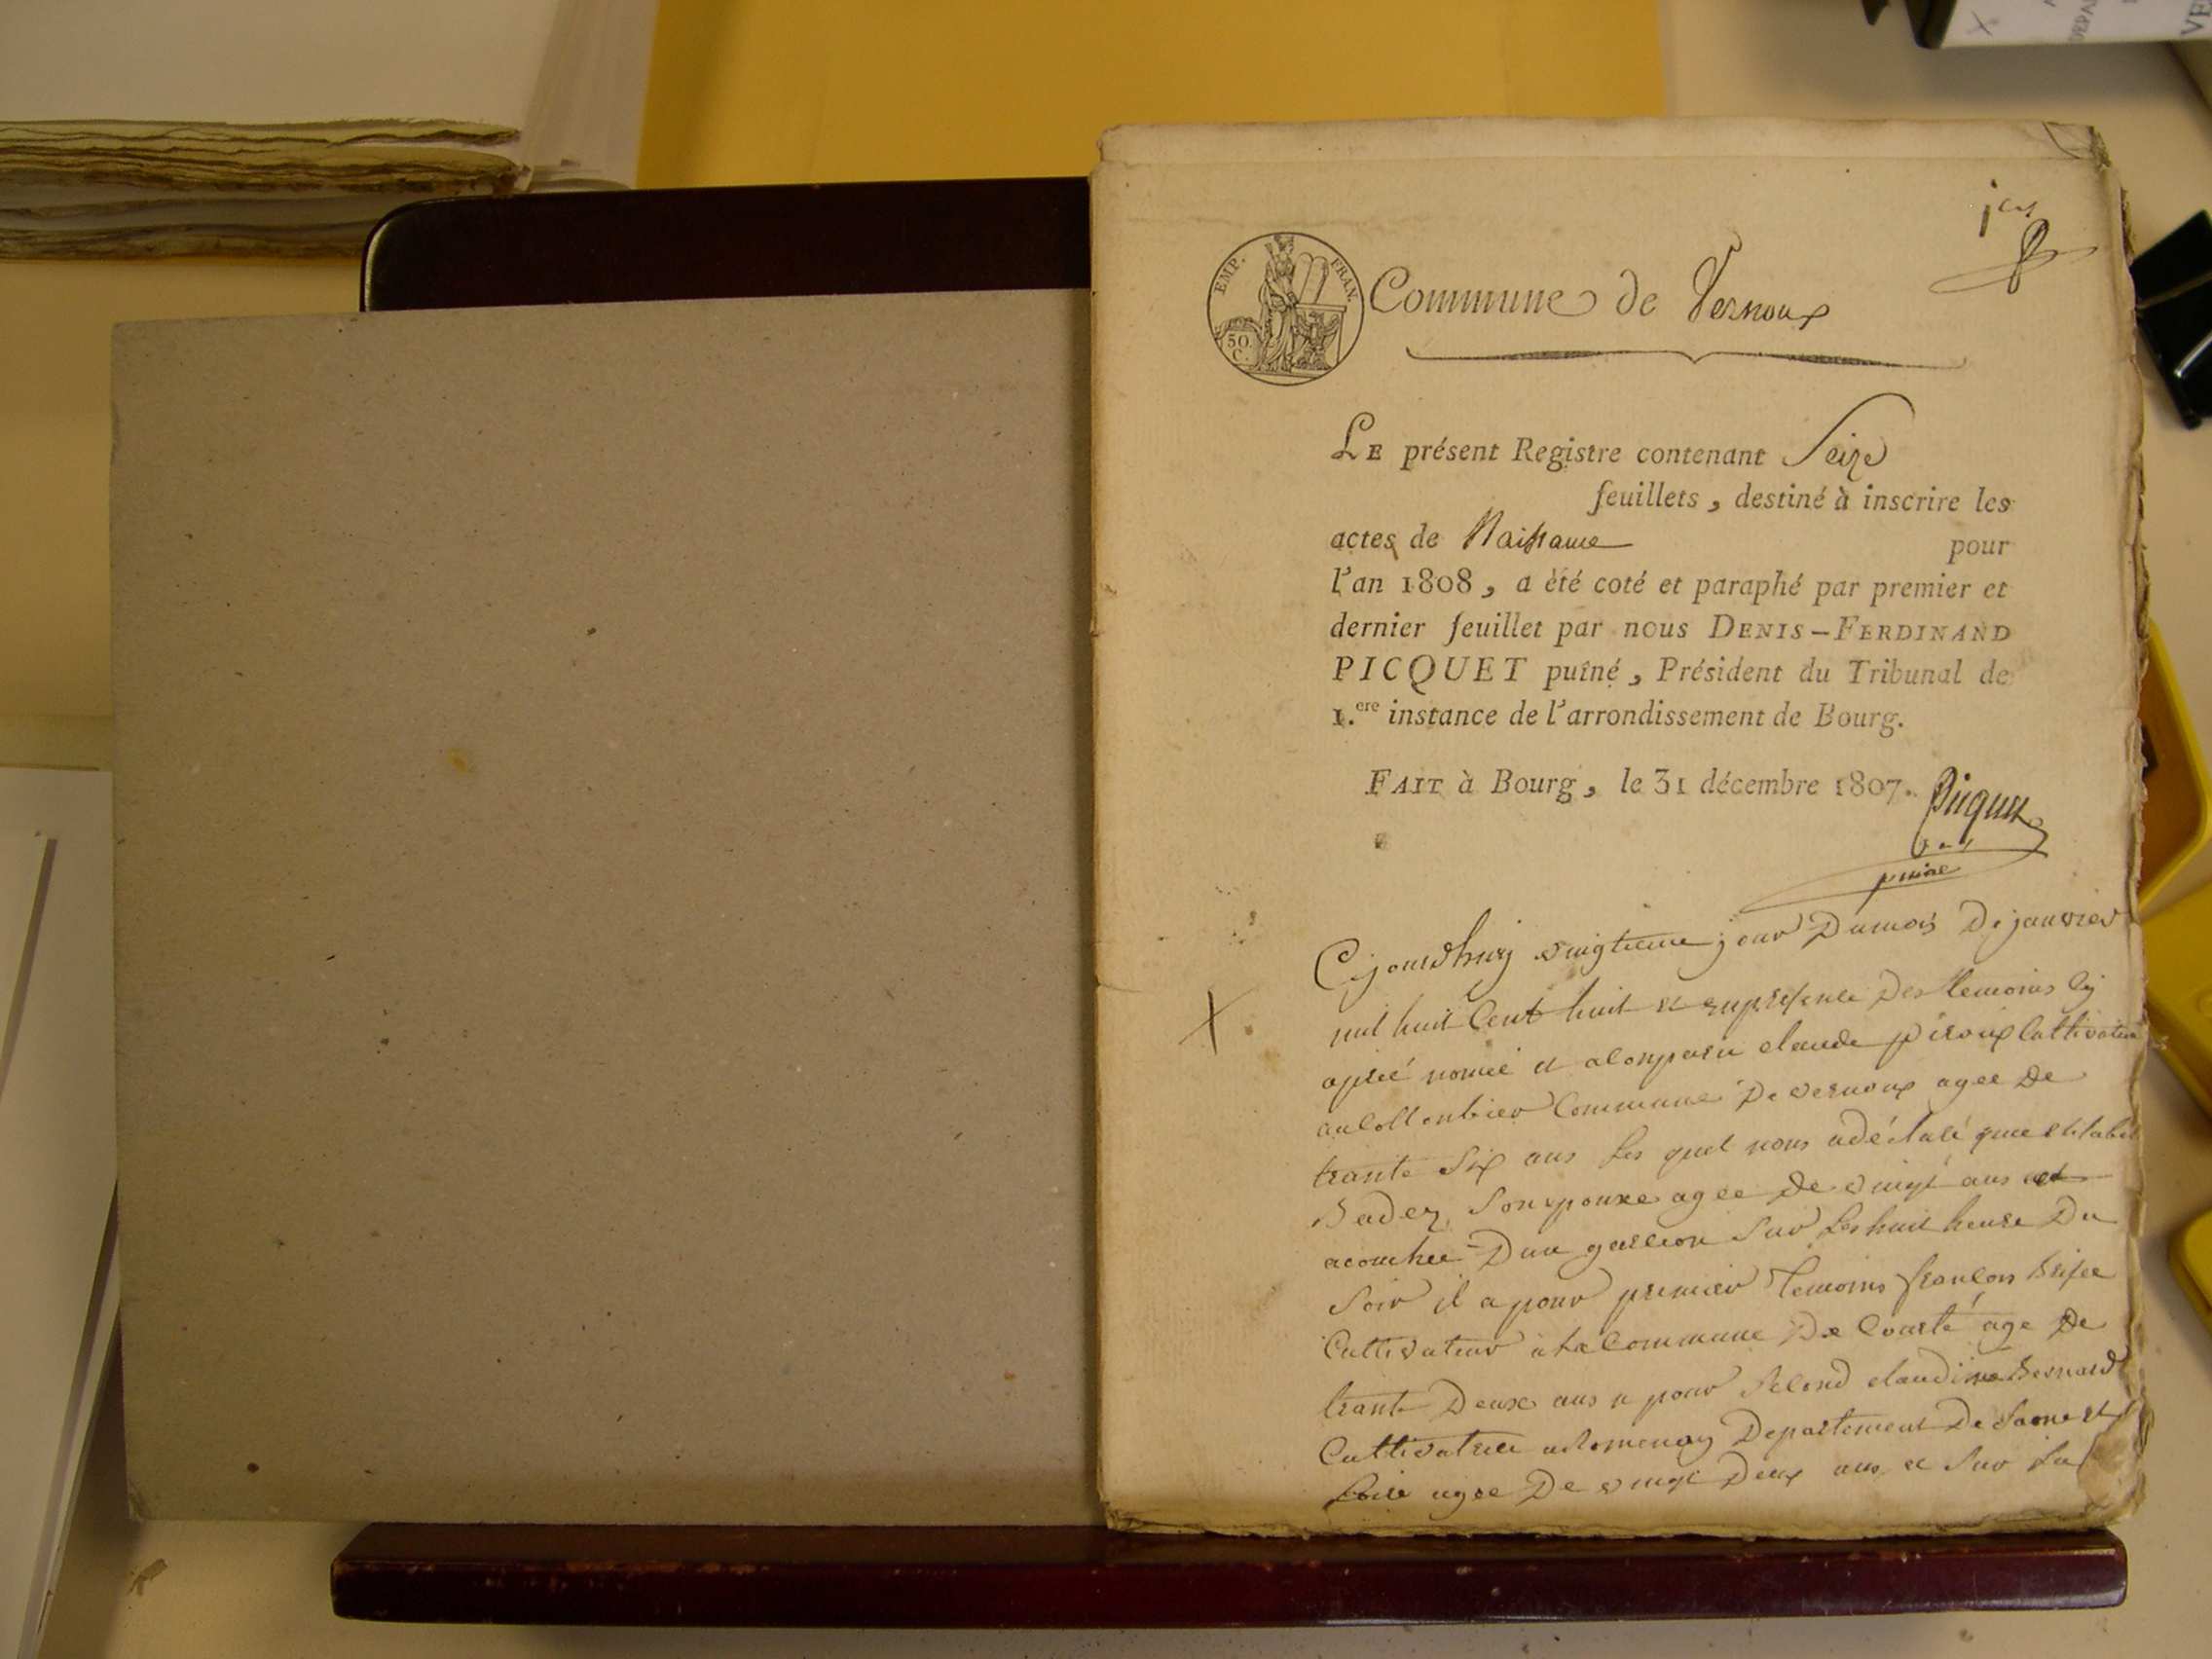 1er
EMP. FRAN.
50.
C.
Commune de Vernoux
LE présent Registre contenant Seize
feuillets, destiné à inscrire les
actes de Naissance pour
l'an 1808, a été coté et paraphé par premier et
dernier feuillet par nous DENIS-FERDINAND
PICQUET puîné, Président du Tribunal de
1.ere instance de l'arrondissement de Bourg.
FAIT à Bourg, le 31 décembre 1807.
Picquet
puiné
Cejourdhuy vingtieme jour Dumois De janvier
mil huit Cent huit et enpresence Des temoins Cy
apreé nomé et alonparu claude piroux Cultivateur
aucollonbier Commune De vernoux agee De
trante Six ans les quel nous adéclaré que
Badey Sonepouxe agee De vingt ans
acouchee Dun garcion Sur les huit heure Du
Soir il a pour premier temoins francois
Cultivateur a la Commune De Courte age De
trante Deux ans a pour Second claudine Bernard
Cultivatrice aRomenay Departement De Saone et
Loire agee De vingt Deux ans et Sur la